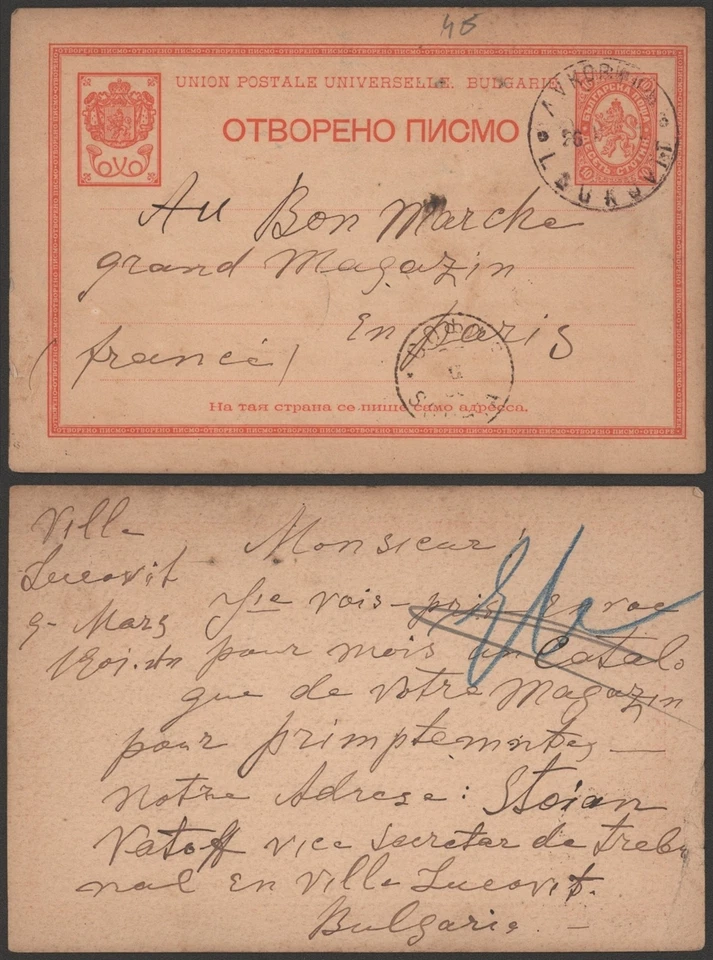 46
UNION POSTALE UNIVERSELLE. BULGARIE
ОТВОРЕНО ПИСМО
БЪЛГАРСКА ПОЩА
ДЕСЕТЬ СТОТИНКИ
10 10
LOUKOVIT
26
Au Bon Marche
grand Magazin
En paris
(francé)
СОФИЯ
На тая страна се пише само адресса.
Ville
Lucovit
Mars
1901.
Monsieur!
vois prie Envoe
pour mois un Catalo
gue de votre Magazin
pour primptemntes
notre Adrese: Stoian
Vatoff vice secretar de trebu
nal en ville Lucovit.
Bulgarie. -